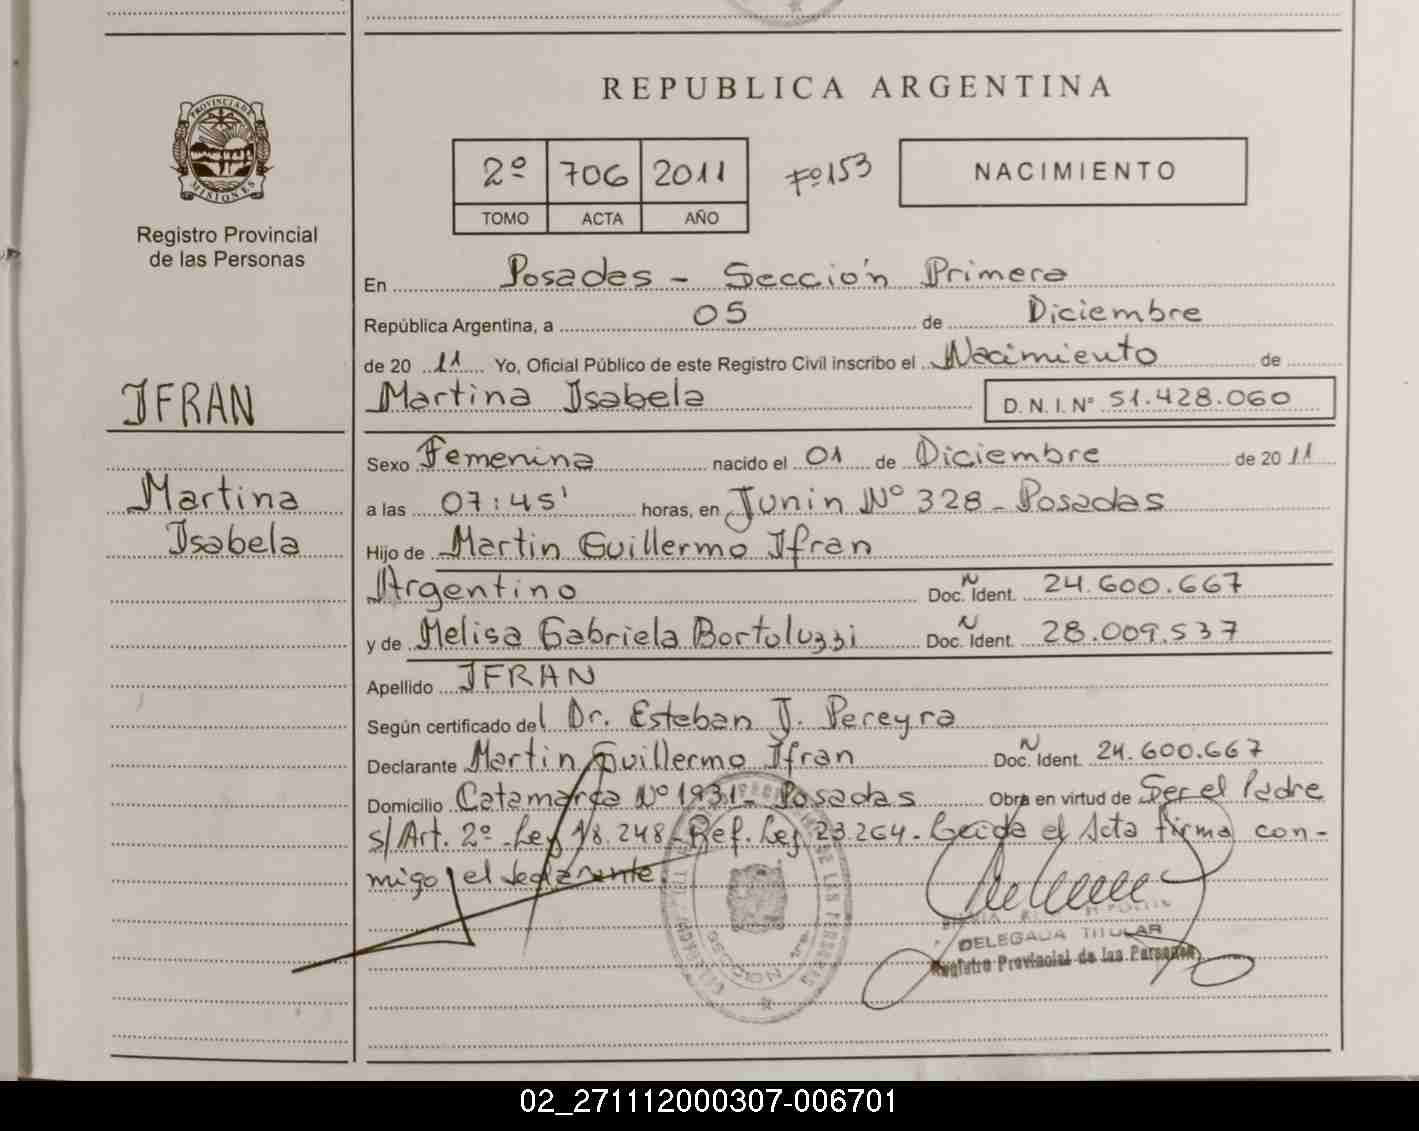 REPUBLICA ARGENTINA
PROVINCIA DE
MISIONES
Registro Provincial
de las Personas
2º 706 2011 Fº153 NACIMIENTO
TOMO ACTA AÑO
En Posadas - Sección Primera
República Argentina, a 05 de Diciembre
de 20 11 Yo, Oficial Público de este Registro Civil inscribo el Nacimiento de
IFRAN
Martina Isabela D. N. I. Nº 51.428.060
Sexo Femenina nacido el 01 de Diciembre de 20 11
Martina
a las 07:45' horas, en Junin Nº 328 - Posadas
Isabela
Hijo de Martin Guillermo Ifran
Argentino Doc. Ident. 24.600.667
y de Melisa Gabriela Bortoluzzi Doc. Ident. 28.009.537
Apellido IFRAN
Según certificado del Dr. Esteban J. Pereyra
Declarante Martin Guillermo Ifran Doc. Ident. 24.600.667
Domicilio Catamarca Nº 1931 - Posadas Obra en virtud de Ser el Padre
s/Art. 2º - Ley 18.248 - Ref. Ley 23.264 - Leida el Acta firma con-
migo el declarante.
DELEGADA TITULAR
Registro Provincial de las Personas
02_271112000307-006701